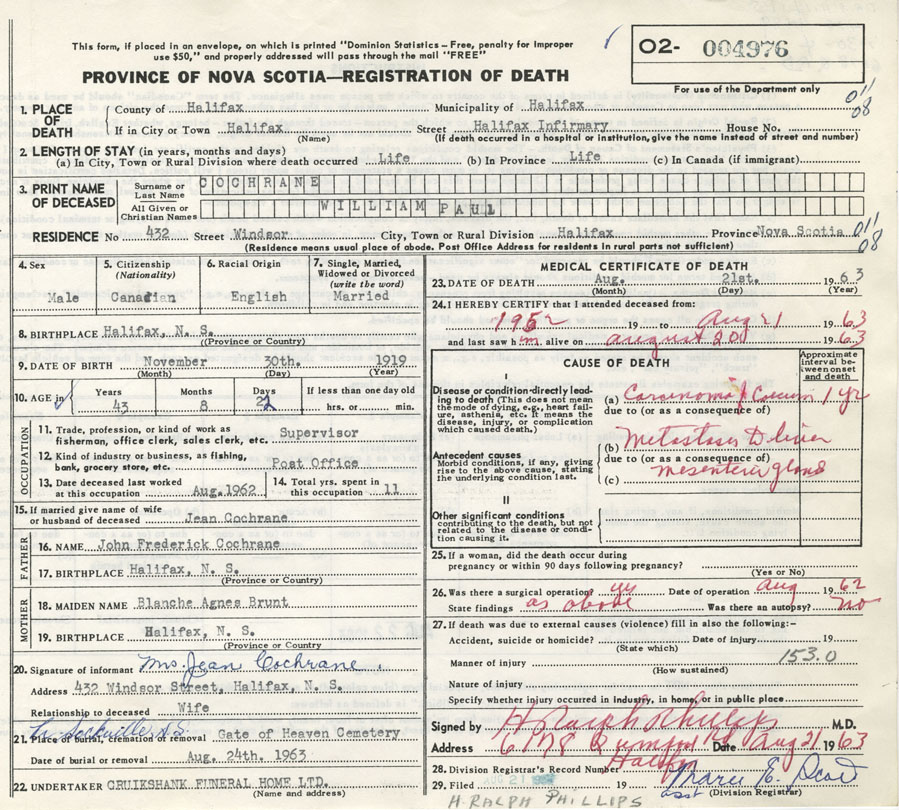 This form, if placed in an envelope, on which is printed "Dominion Statistics - Free, penalty for improper
use $50," and properly addressed will pass through the mail "FREE"
O2- 004976
PROVINCE OF NOVA SCOTIA—REGISTRATION OF DEATH
For use of the Department only
1. PLACE OF DEATH
County of Halifax Municipality of Halifax
If in City or Town Halifax Street Halifax Infirmary House No.
(Name) (If death occurred in a hospital or institution, give the name instead of street and number)
011
08
2. LENGTH OF STAY (in years, months and days)
(a) In City, Town or Rural Division where death occurred Life (b) In Province Life (c) In Canada (if immigrant)
3. PRINT NAME OF DECEASED
Surname or Last Name COCHRANE
All Given or Christian Names WILLIAM PAUL
RESIDENCE No 432 Street Windsor City, Town or Rural Division Halifax Province Nova Scotia
(Residence means usual place of abode. Post Office Address for residents in rural parts not sufficient)
011
08
4. Sex
Male
5. Citizenship (Nationality)
Canadian
6. Racial Origin
English
7. Single, Married, Widowed or Divorced (write the word)
Married
8. BIRTHPLACE Halifax, N. S.
(Province or Country)
9. DATE OF BIRTH November 30th. 1919
(Month) (Day) (Year)
10. AGE in
Years Months Days If less than one day old
43 8 22 hrs. or min.
OCCUPATION
11. Trade, profession, or kind of work as
fisherman, office clerk, sales clerk, etc. Supervisor
12. Kind of industry or business, as fishing,
bank, grocery store, etc. Post Office
13. Date deceased last worked
at this occupation Aug.1962
14. Total yrs. spent in
this occupation 11
15. If married give name of wife
or husband of deceased Jean Cochrane
FATHER
16. NAME John Frederick Cochrane
17. BIRTHPLACE Halifax, N. S.
(Province or Country)
MOTHER
18. MAIDEN NAME Blanche Agnes Brunt
19. BIRTHPLACE Halifax, N. S.
(Province or Country
20. Signature of informant Mrs. Jean Cochrane
Address 432 Windsor Street, Halifax, N. S.
Relationship to deceased Wife
Sackville N.S.
21. Place of burial, cremation or removal Gate of Heaven Cemetery
Date of burial or removal Aug. 24th. 1963
22. UNDERTAKER CRUIKSHANK FUNERAL HOME LTD.
(Name and address)
MEDICAL CERTIFICATE OF DEATH
23. DATE OF DEATH Aug. 21st. 1963
(Month) (Day) (Year)
24. I HEREBY CERTIFY that I attended deceased from:
1952 19 to Aug 21 1963
and last saw him alive on august 20 1963
CAUSE OF DEATH
Approximate interval between onset and death
I
Disease or condition directly leading to death (This does not mean the mode of dying, e.g., heart failure, asthenia, etc. It means the disease, injury, or complication which caused death.)
(a) Carcinoma of Cecum 1 yr
due to (or as a consequence of)
Antecedent causes
Morbid conditions, if any, giving rise to the above cause, stating the underlying condition last.
(b) Metastases to liver
due to (or as a consequence of)
(c) mesenteric glands
II
Other significant conditions
contributing to the death, but not related to the disease or condition causing it.
25. If a woman, did the death occur during
pregnancy or within 90 days following pregnancy?
(Yes or No)
26. Was there a surgical operation? yes Date of operation Aug 1962
State findings as above Was there an autopsy? no
27. If death was due to external causes (violence) fill in also the following:—
Accident, suicide or homicide? Date of injury 19
(State which)
153.0
Manner of injury
(How sustained)
Nature of injury
Specify whether injury occurred in industry, in home, or in public place
Signed by H Ralph Phillips M.D.
Address 6178 Date Aug 21 1963
Halifax
28. Division Registrar's Record Number
29. Filed 19
asst (Division Registrar)
H. RALPH PHILLIPS